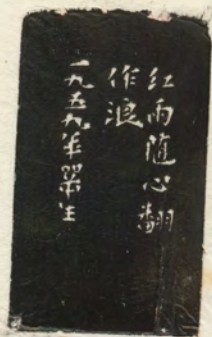 红雨随心翻
作浪
一九五九年翠生